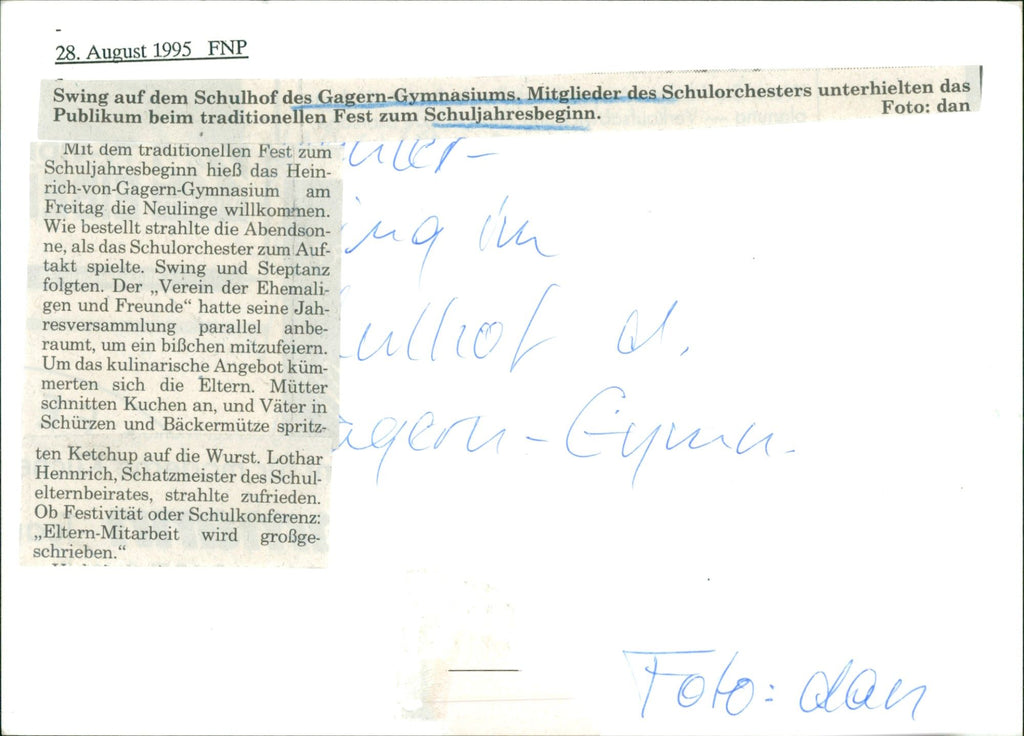 28. August 1995 FNP
Swing auf dem Schulhof des Gagern-Gymnasiums. Mitglieder des Schulorchesters unterhielten das
Publikum beim traditionellen Fest zum Schuljahresbeginn. Foto: dan
Mit dem traditionellen Fest zum
Schuljahresbeginn hieß das Hein-
rich-von-Gagern-Gymnasium am
Freitag die Neulinge willkommen.
Wie bestellt strahlte die Abendson-
ne, als das Schulorchester zum Auf-
takt spielte. Swing und Steptanz
folgten. Der „Verein der Ehemali-
gen und Freunde“ hatte seine Jah-
resversammlung parallel anbe-
raumt, um ein bißchen mitzufeiern.
Um das kulinarische Angebot küm-
merten sich die Eltern. Mütter
schnitten Kuchen an, und Väter in
Schürzen und Bäckermütze spritz-
ten Ketchup auf die Wurst. Lothar
Hennrich, Schatzmeister des Schul-
elternbeirates, strahlte zufrieden.
Ob Festivität oder Schulkonferenz:
„Eltern-Mitarbeit wird großge-
schrieben.“
ing im
ulhof d.
agern-Gymn.
Foto: dan